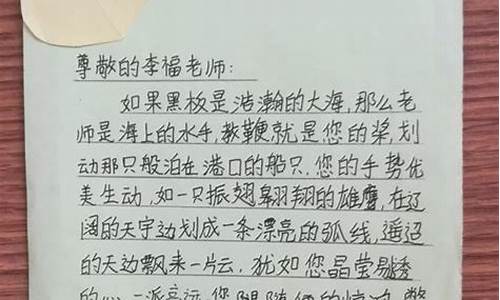 尊敬的李福老师:
如果黑板是浩瀚的大海,那么老
师是海上的水手,教鞭就是您的桨,划
动那只般泊在港口的船只,您的手势优
美生动,如一只振翅翱翔的雄鹰,在辽
阔的天宇边划成一条漂亮的弧线,遥迢
的天边飘来一片云,犹如您晶莹剔透
的心,一派高远,您